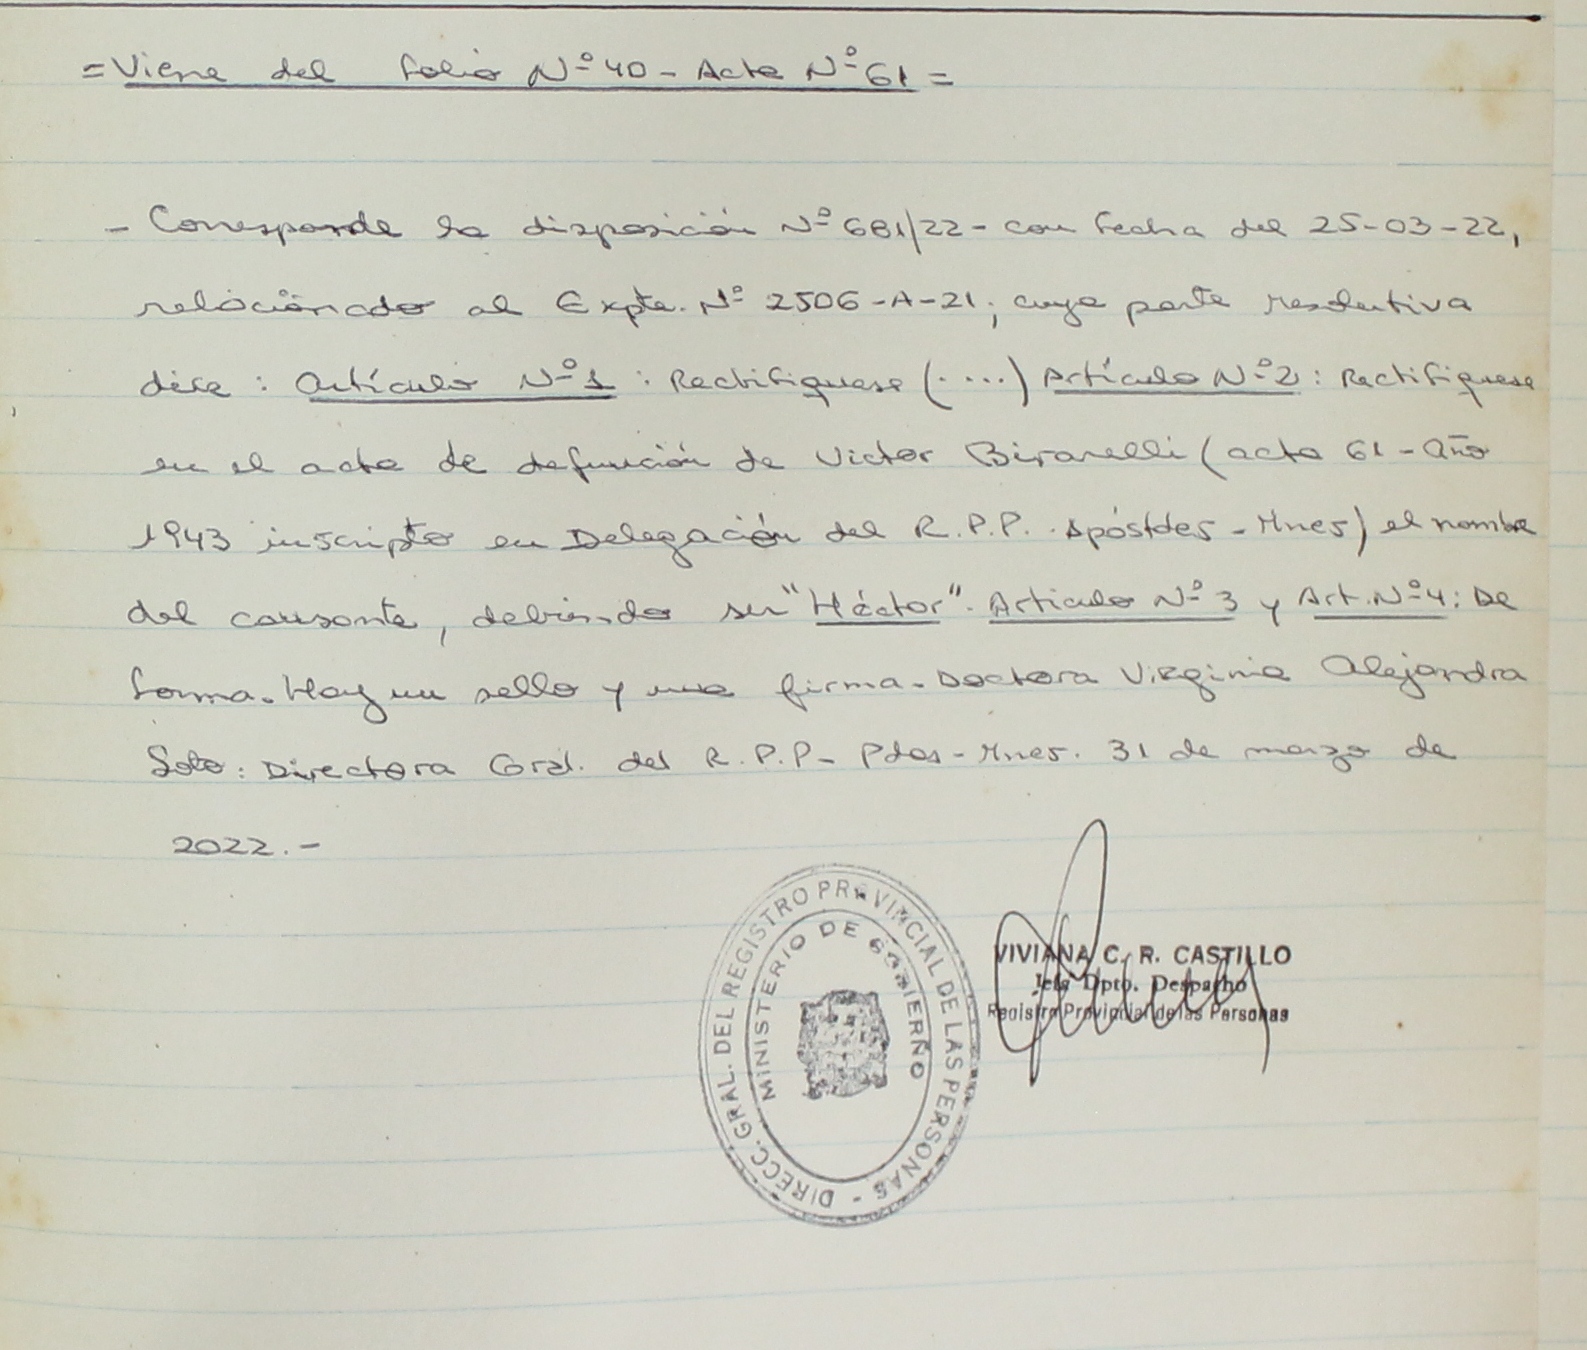 = Viene del folio Nº 40 - Acta Nº 61 =
- Corresponde la disposición Nº 681/22 - con fecha del 25-03-22,
relacionado al Expte. Nº 2506-A-21; cuya parte resolutiva
dice : Artículo Nº 1 : Rectifiquese (....) Artículo Nº 2 : Rectifiquese
en el acta de defunción de Victor Biranelli (acta 61 - Año
1943 inscripto en Delegación del R.P.P. Apóstoles - Mnes) el nombre
del causante, debiendo ser "Héctor". Articulo Nº 3 y Art. Nº 4: De
forma. Hay un sello y una firma. Doctora Virginia Alejandra
Soto : Directora Gral. del R.P.P - Pdas - Mnes. 31 de marzo de
2022.-
DIRECC. GRAL. DEL REGISTRO PROVINCIAL DE LAS PERSONAS -
MINISTERIO DE GOBIERNO
VIVIANA C. R. CASTILLO
Jefa Dpto. Despacho
Registro Provincial de las Personas